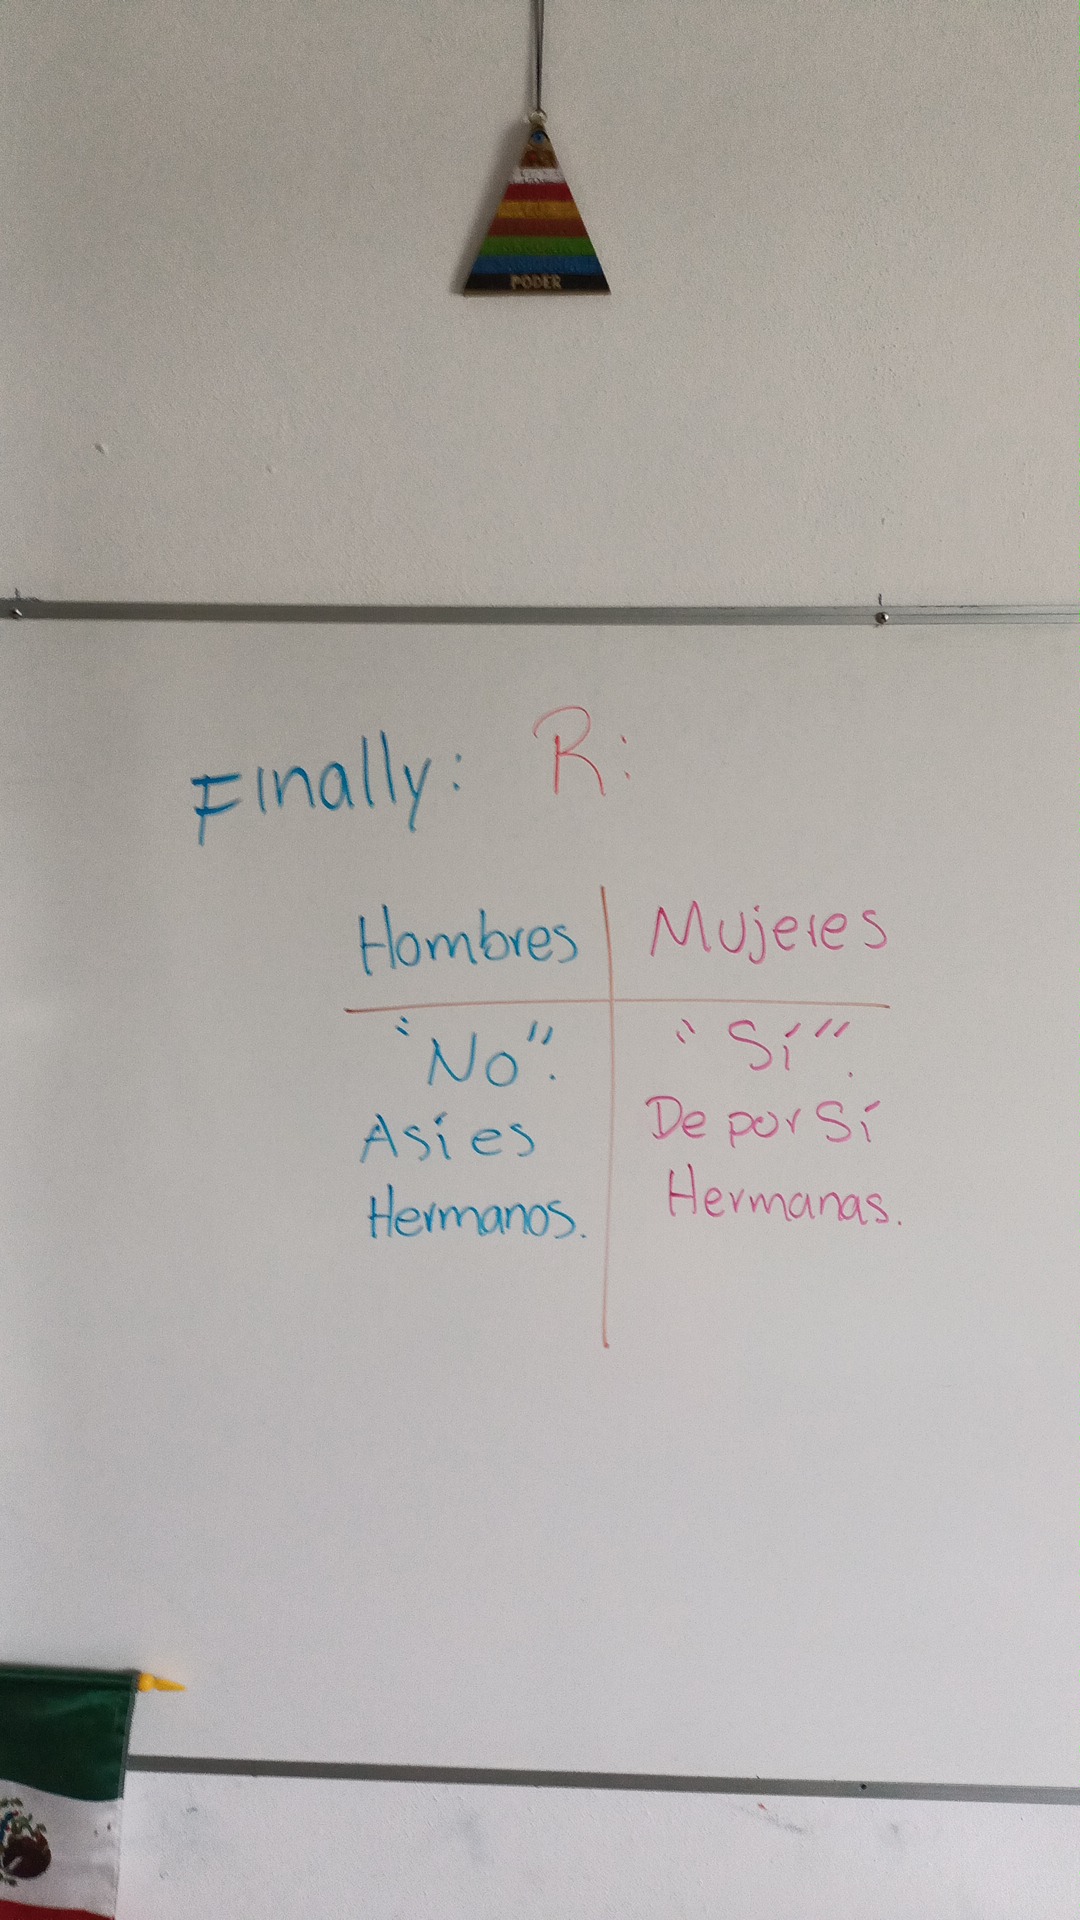 PODER
Finally: R:
Hombres
"No".
Así es
Hermanos.
Mujeres
"Sí".
De por Sí
Hermanas.